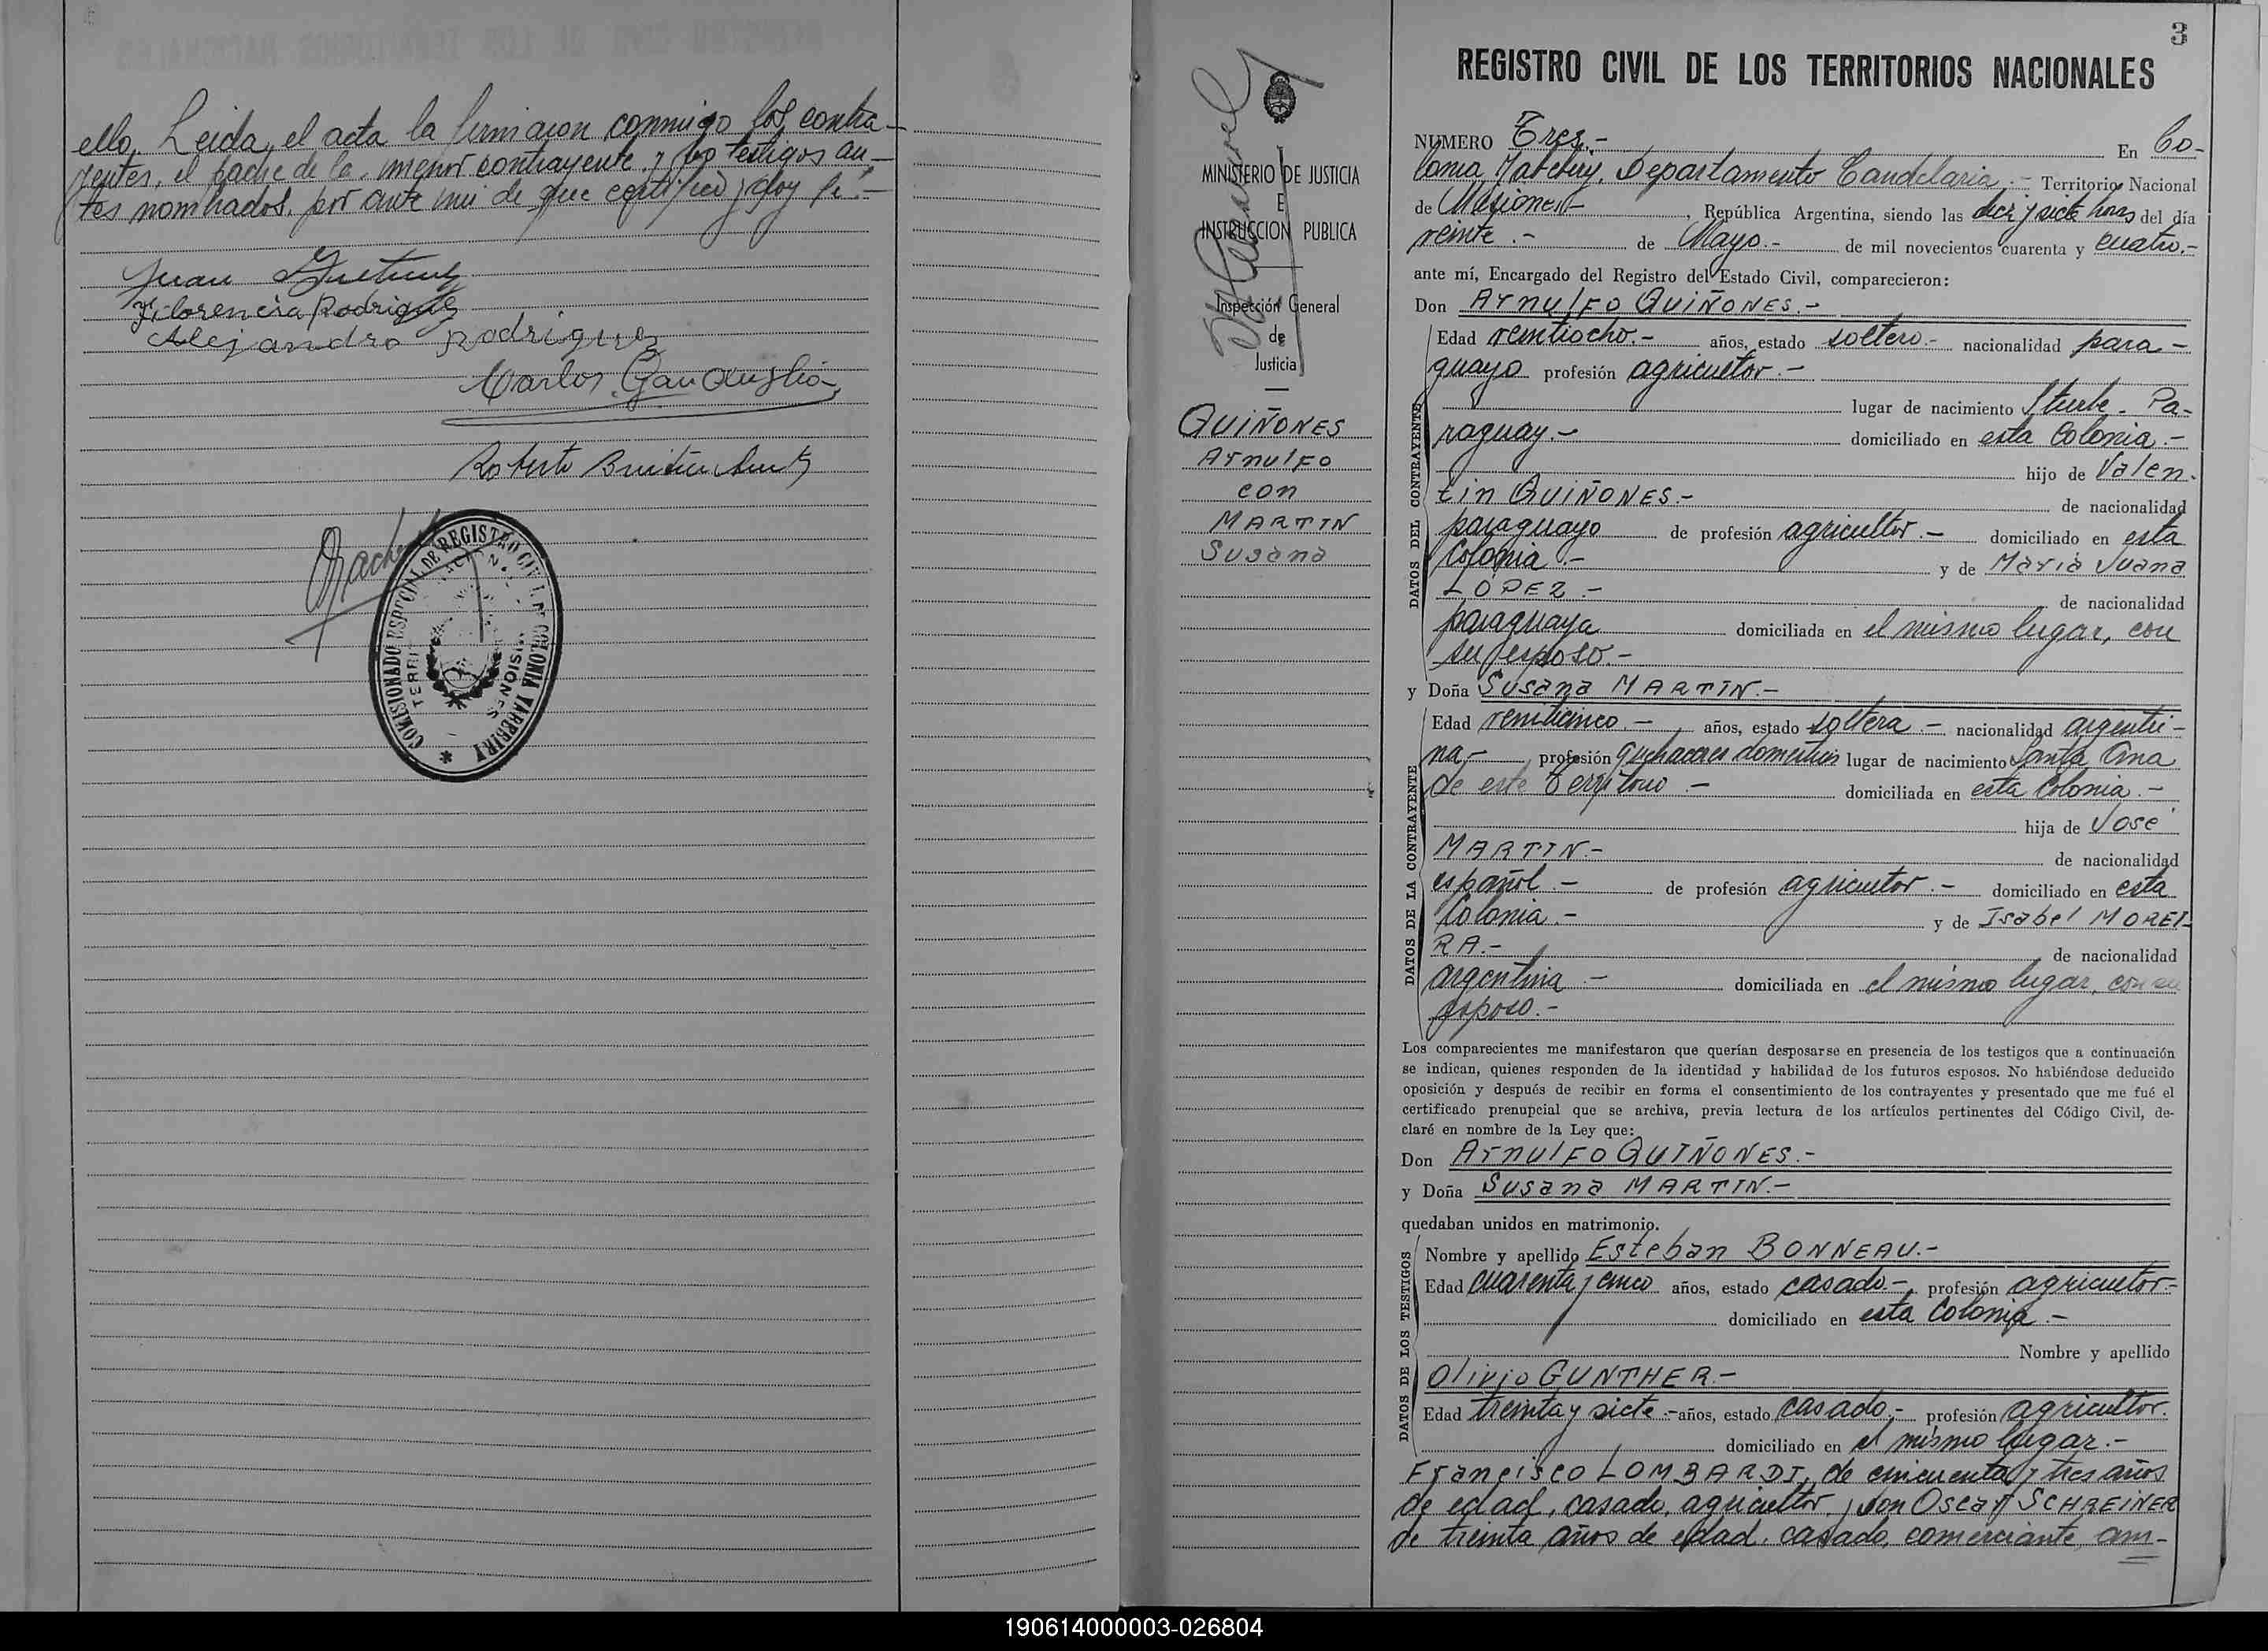 ello. Leida, el acta la firmaron conmigo los contra-
yentes, el padre de la menor contrayente, y los testigos an-
tes nombrados, por ante mi de que certifico y doy fé.-
Juan
Florencia Rodriguez
Alejandro Rodriguez
Carlos
Roberto
COMISIONADO ESPECIAL DE REGISTRO CIVIL
COLONIA YABEBIRY
MISIONES
3
REGISTRO CIVIL DE LOS TERRITORIOS NACIONALES
MINISTERIO DE JUSTICIA
E
INSTRUCCION PUBLICA
Inspección General
de
Justicia
QUIÑONES
Arnulfo
con
MARTIN
Susana
NUMERO Tres.- En Co-
lonia Yabebiry, Departamento Candelaria.- Territorio Nacional
de Misiones, República Argentina, siendo las diez y siete horas del día
veinte.- de Mayo.- de mil novecientos cuarenta y cuatro.-
ante mí, Encargado del Registro del Estado Civil, comparecieron:
Don Arnulfo QUIÑONES.-
DATOS DEL CONTRAYENTE
Edad veintiocho.- años, estado soltero.- nacionalidad para-
guayo profesión agricultor.-
lugar de nacimiento Iturbe - Pa-
raguay.- domiciliado en esta Colonia.-
hijo de Valen-
tin QUIÑONES.- de nacionalidad
paraguayo de profesión agricultor.- domiciliado en esta
Colonia.- y de María Juana
LÓPEZ.- de nacionalidad
paraguaya domiciliada en el mismo lugar, con
su esposo.-
y Doña Susana MARTIN.-
DATOS DE LA CONTRAYENTE
Edad veinticinco.- años, estado soltera.- nacionalidad argenti-
na,- profesión quehaceres domésticos lugar de nacimiento Santa Ana
de este Territorio.- domiciliada en esta Colonia.-
hija de José
MARTIN.- de nacionalidad
español.- de profesión agricultor.- domiciliado en esta
Colonia.- y de Isabel MOREI-
RA.- de nacionalidad
argentina.- domiciliada en el mismo lugar, con su
esposo.-
Los comparecientes me manifestaron que querían desposarse en presencia de los testigos que a continuación
se indican, quienes responden de la identidad y habilidad de los futuros esposos. No habiéndose deducido
oposición y después de recibir en forma el consentimiento de los contrayentes y presentado que me fué el
certificado prenupcial que se archiva, previa lectura de los artículos pertinentes del Código Civil, de-
claré en nombre de la Ley que:
Don Arnulfo QUIÑONES.-
y Doña Susana MARTIN.-
quedaban unidos en matrimonio.
DATOS DE LOS TESTIGOS
Nombre y apellido Esteban BONNEAU.-
Edad cuarenta y cinco años, estado casado.- profesión agricultor.-
domiciliado en esta Colonia.-
Nombre y apellido
Olivio GUNTHER.-
Edad treinta y siete.- años, estado casado,- profesión agricultor.
domiciliado en el mismo lugar.-
Francisco LOMBARDI, de cincuenta y tres años
de edad, casado, agricultor, y don Oscar SCHREINER
de treinta años de edad, casado, comerciante, am-
190614000003-026804